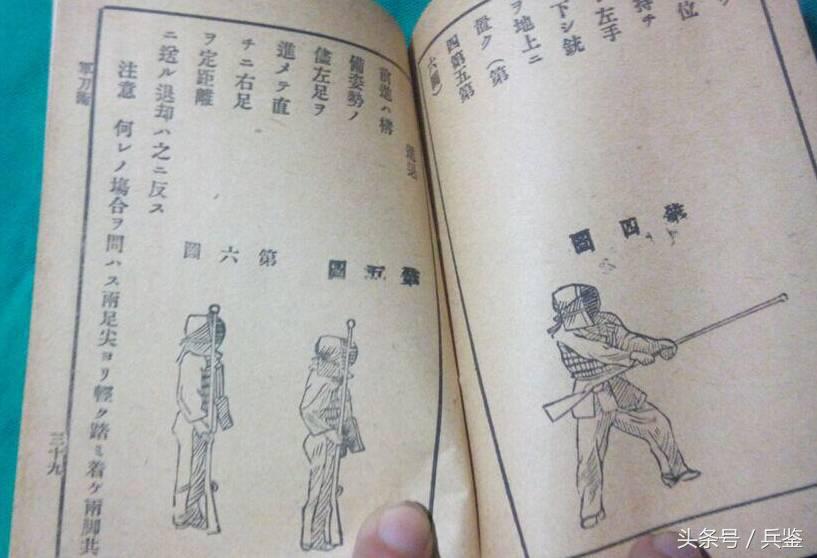 位
持チ
左手
下シ銃
ヲ地上ニ
置ク(第
四第五第
六圖)
第四圖
前進ハ構
備姿勢ノ
儘左足ヲ
進メテ直
チニ右足
ヲ定距離
ニ送ル退却ハ之ニ反ス
注意 何レノ塲合ヲ問ハス兩足尖ヨリ輕ク踏ミ着ケ兩脚共
第五圖
第六圖
軍刀術
三十九
头条号 / 兵鉴